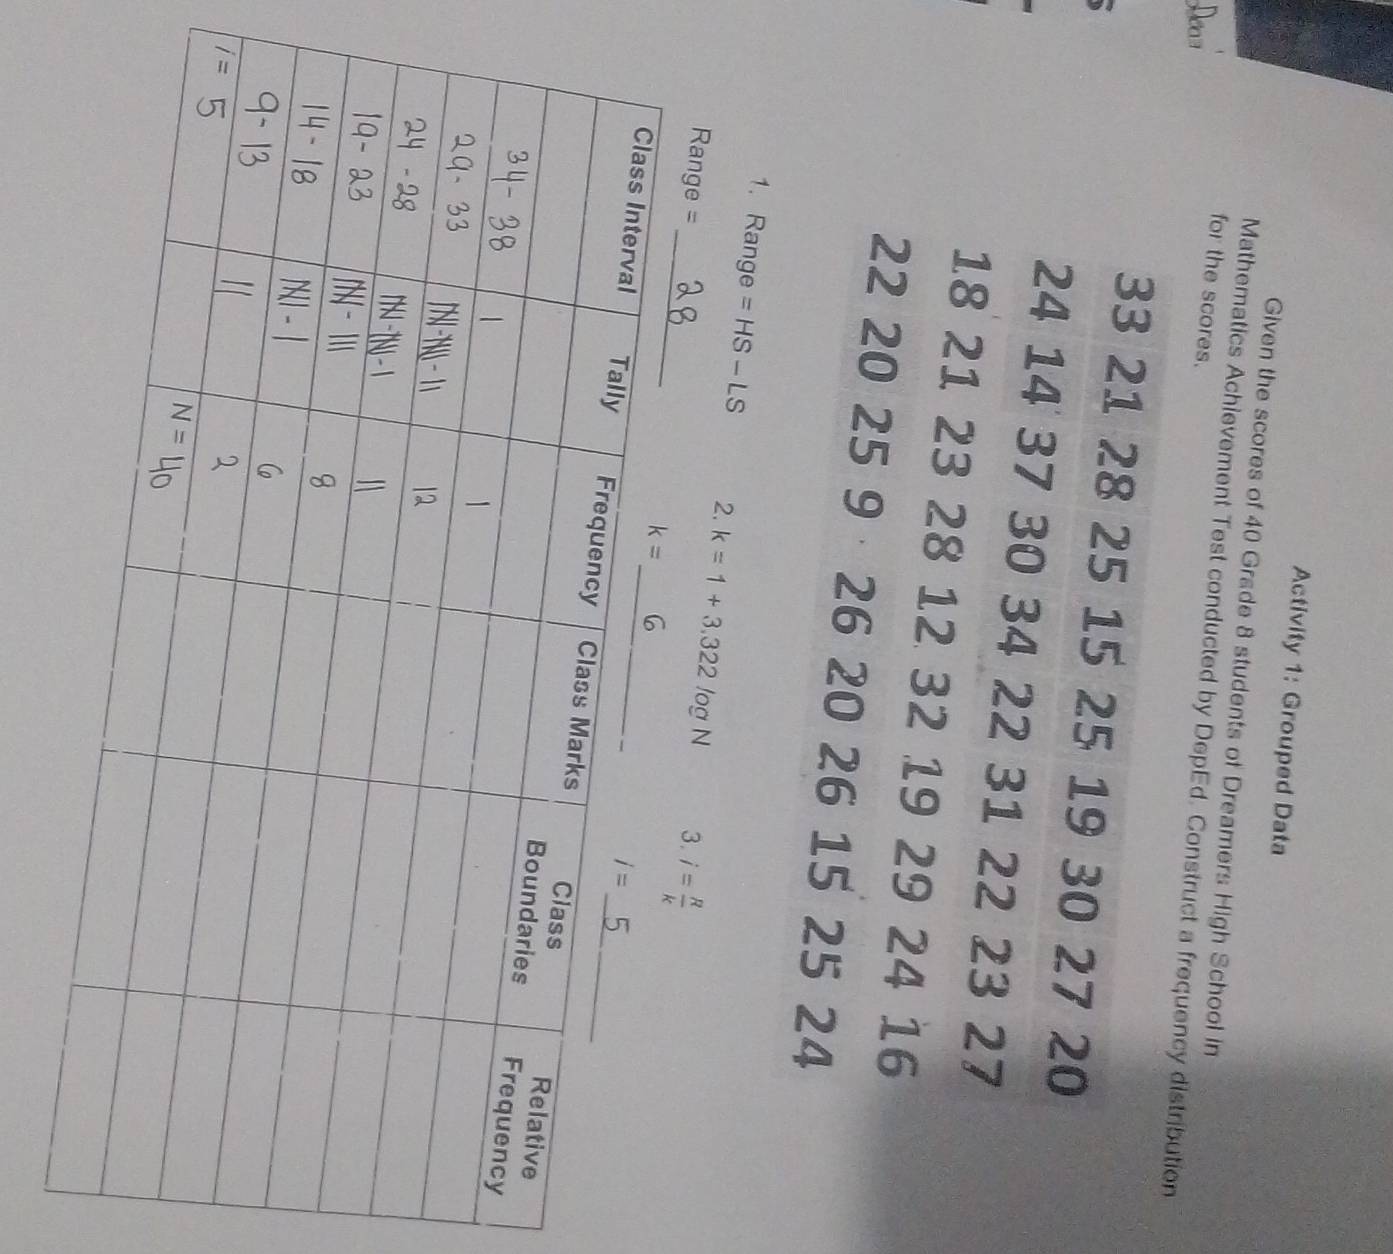 Activity 1: Grouped Data
Given the scores of 40 Grade 8 students of Dreamers High School in
Mathematics Achievement Test conducted by DepEd. Construct a frequency distribution
for the scores.
33 21 28 25 15 25 19 30 27 20
24 14 37 30 34 22 31 22 23 27
18 21 23 28 12 32 19 29 24 16
22 20 25 9 26 20 26 15 25 24
1. Range = HS – LS 2. k = 1 + 3.322 log N 3. i = R/k
Range = 28 k = 6 i = 5
Class Interval Tally Frequency Class Marks Class Boundaries Relative Frequency
34 - 38 | 1
29 - 33 |||| - |||| - || 12
24 - 28 |||| - |||| - | 11
19 - 23 |||| - ||| 8
14 - 18 |||| - | 6
9 - 13 || 2
i = 5 N = 40